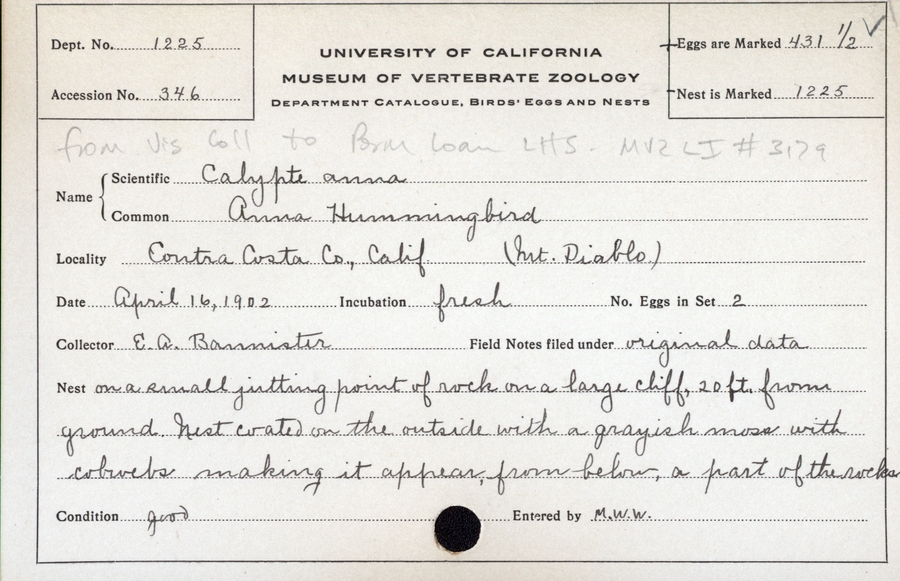 Dept. No. 1225
UNIVERSITY OF CALIFORNIA
MUSEUM OF VERTEBRATE ZOOLOGY
DEPARTMENT CATALOGUE, BIRDS' EGGS AND NESTS
Eggs are Marked 431 1/2 ✓
Accession No. 346
Nest is Marked 1225
from Vis Coll to Perm Loan LHS. MVZ LI # 3179
Name { Scientific Calypte anna
Common Anna Hummingbird
Locality Contra Costa Co., Calif. (Mt. Diablo)
Date April 16, 1902 Incubation fresh No. Eggs in Set 2
Collector E.A. Bannister Field Notes filed under original data
Nest on a small jutting point of rock on a large cliff, 20 ft. from
ground. Nest coated on the outside with a grayish moss with
cobwebs making it appear, from below, a part of the rocks
Condition good Entered by M.W.W.